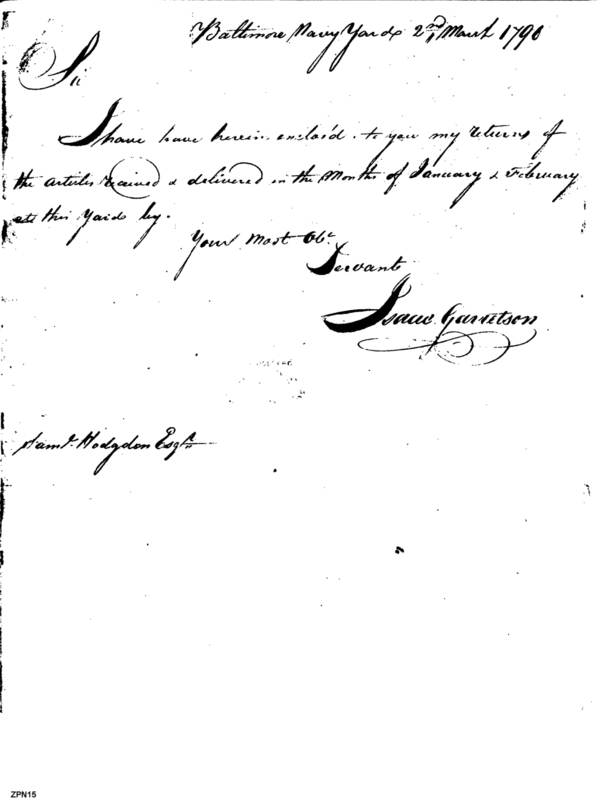 Baltimore Navy Yard 2nd March 1798
Sir
I have have herein enclos'd to you my returns of
the articles received & delivered in the Months of January & February
att this Yard by.
Your Most Obt.
Servant
Isaac Garretson
Saml. Hodgdon Esqr.
ZPN15